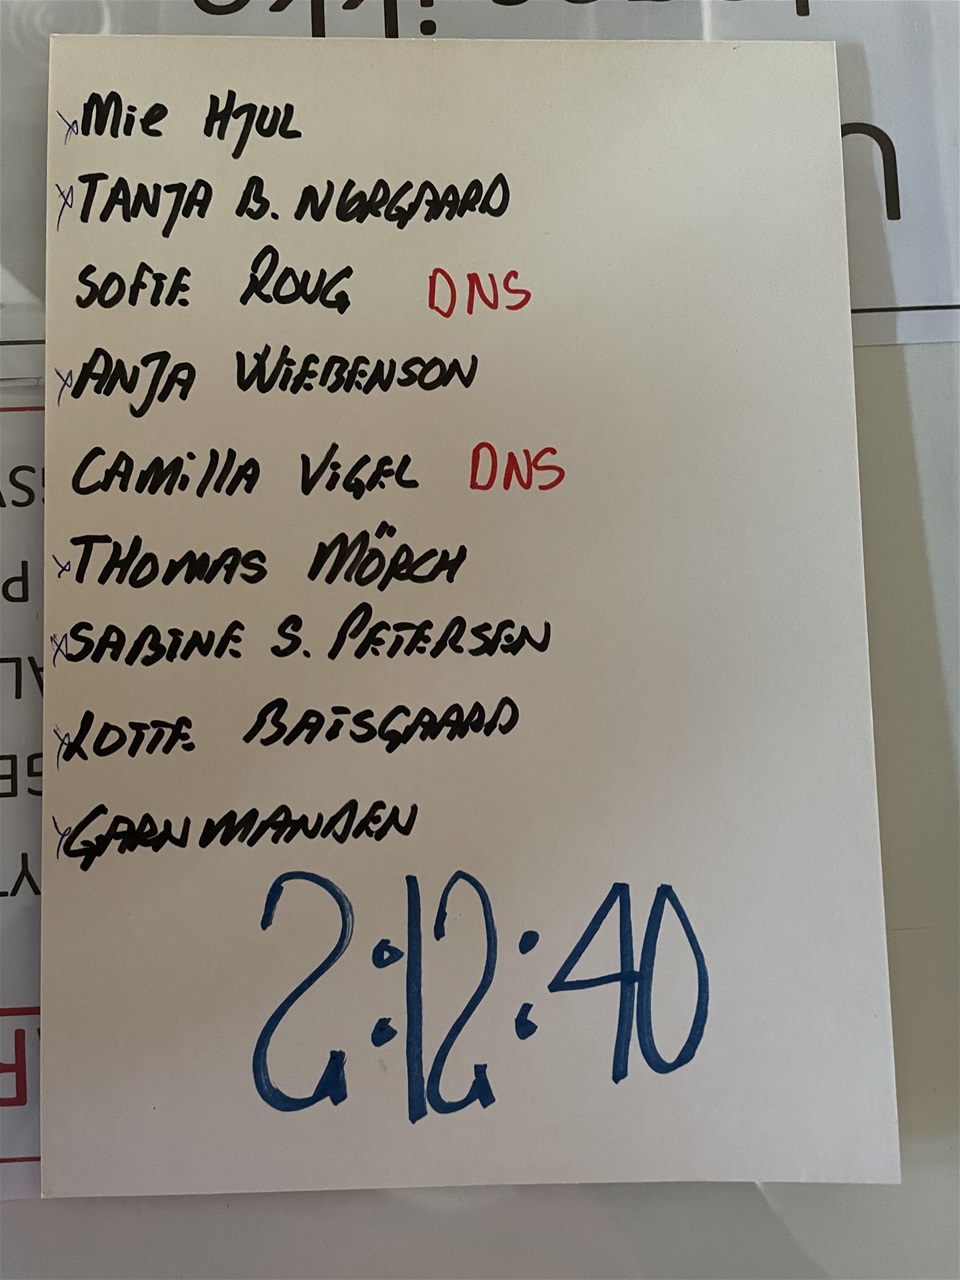 x Mie HJUL
x TANJA B. NØRGAARD
SOFIE ROUG DNS
x ANJA WIEBENSON
CAMIllA ViGEL DNS
x THOMAS MÖRCH
x SABINE S. PETERSEN
x LOTTE BAISGAARD
x GARNMANDEN
2:12:40